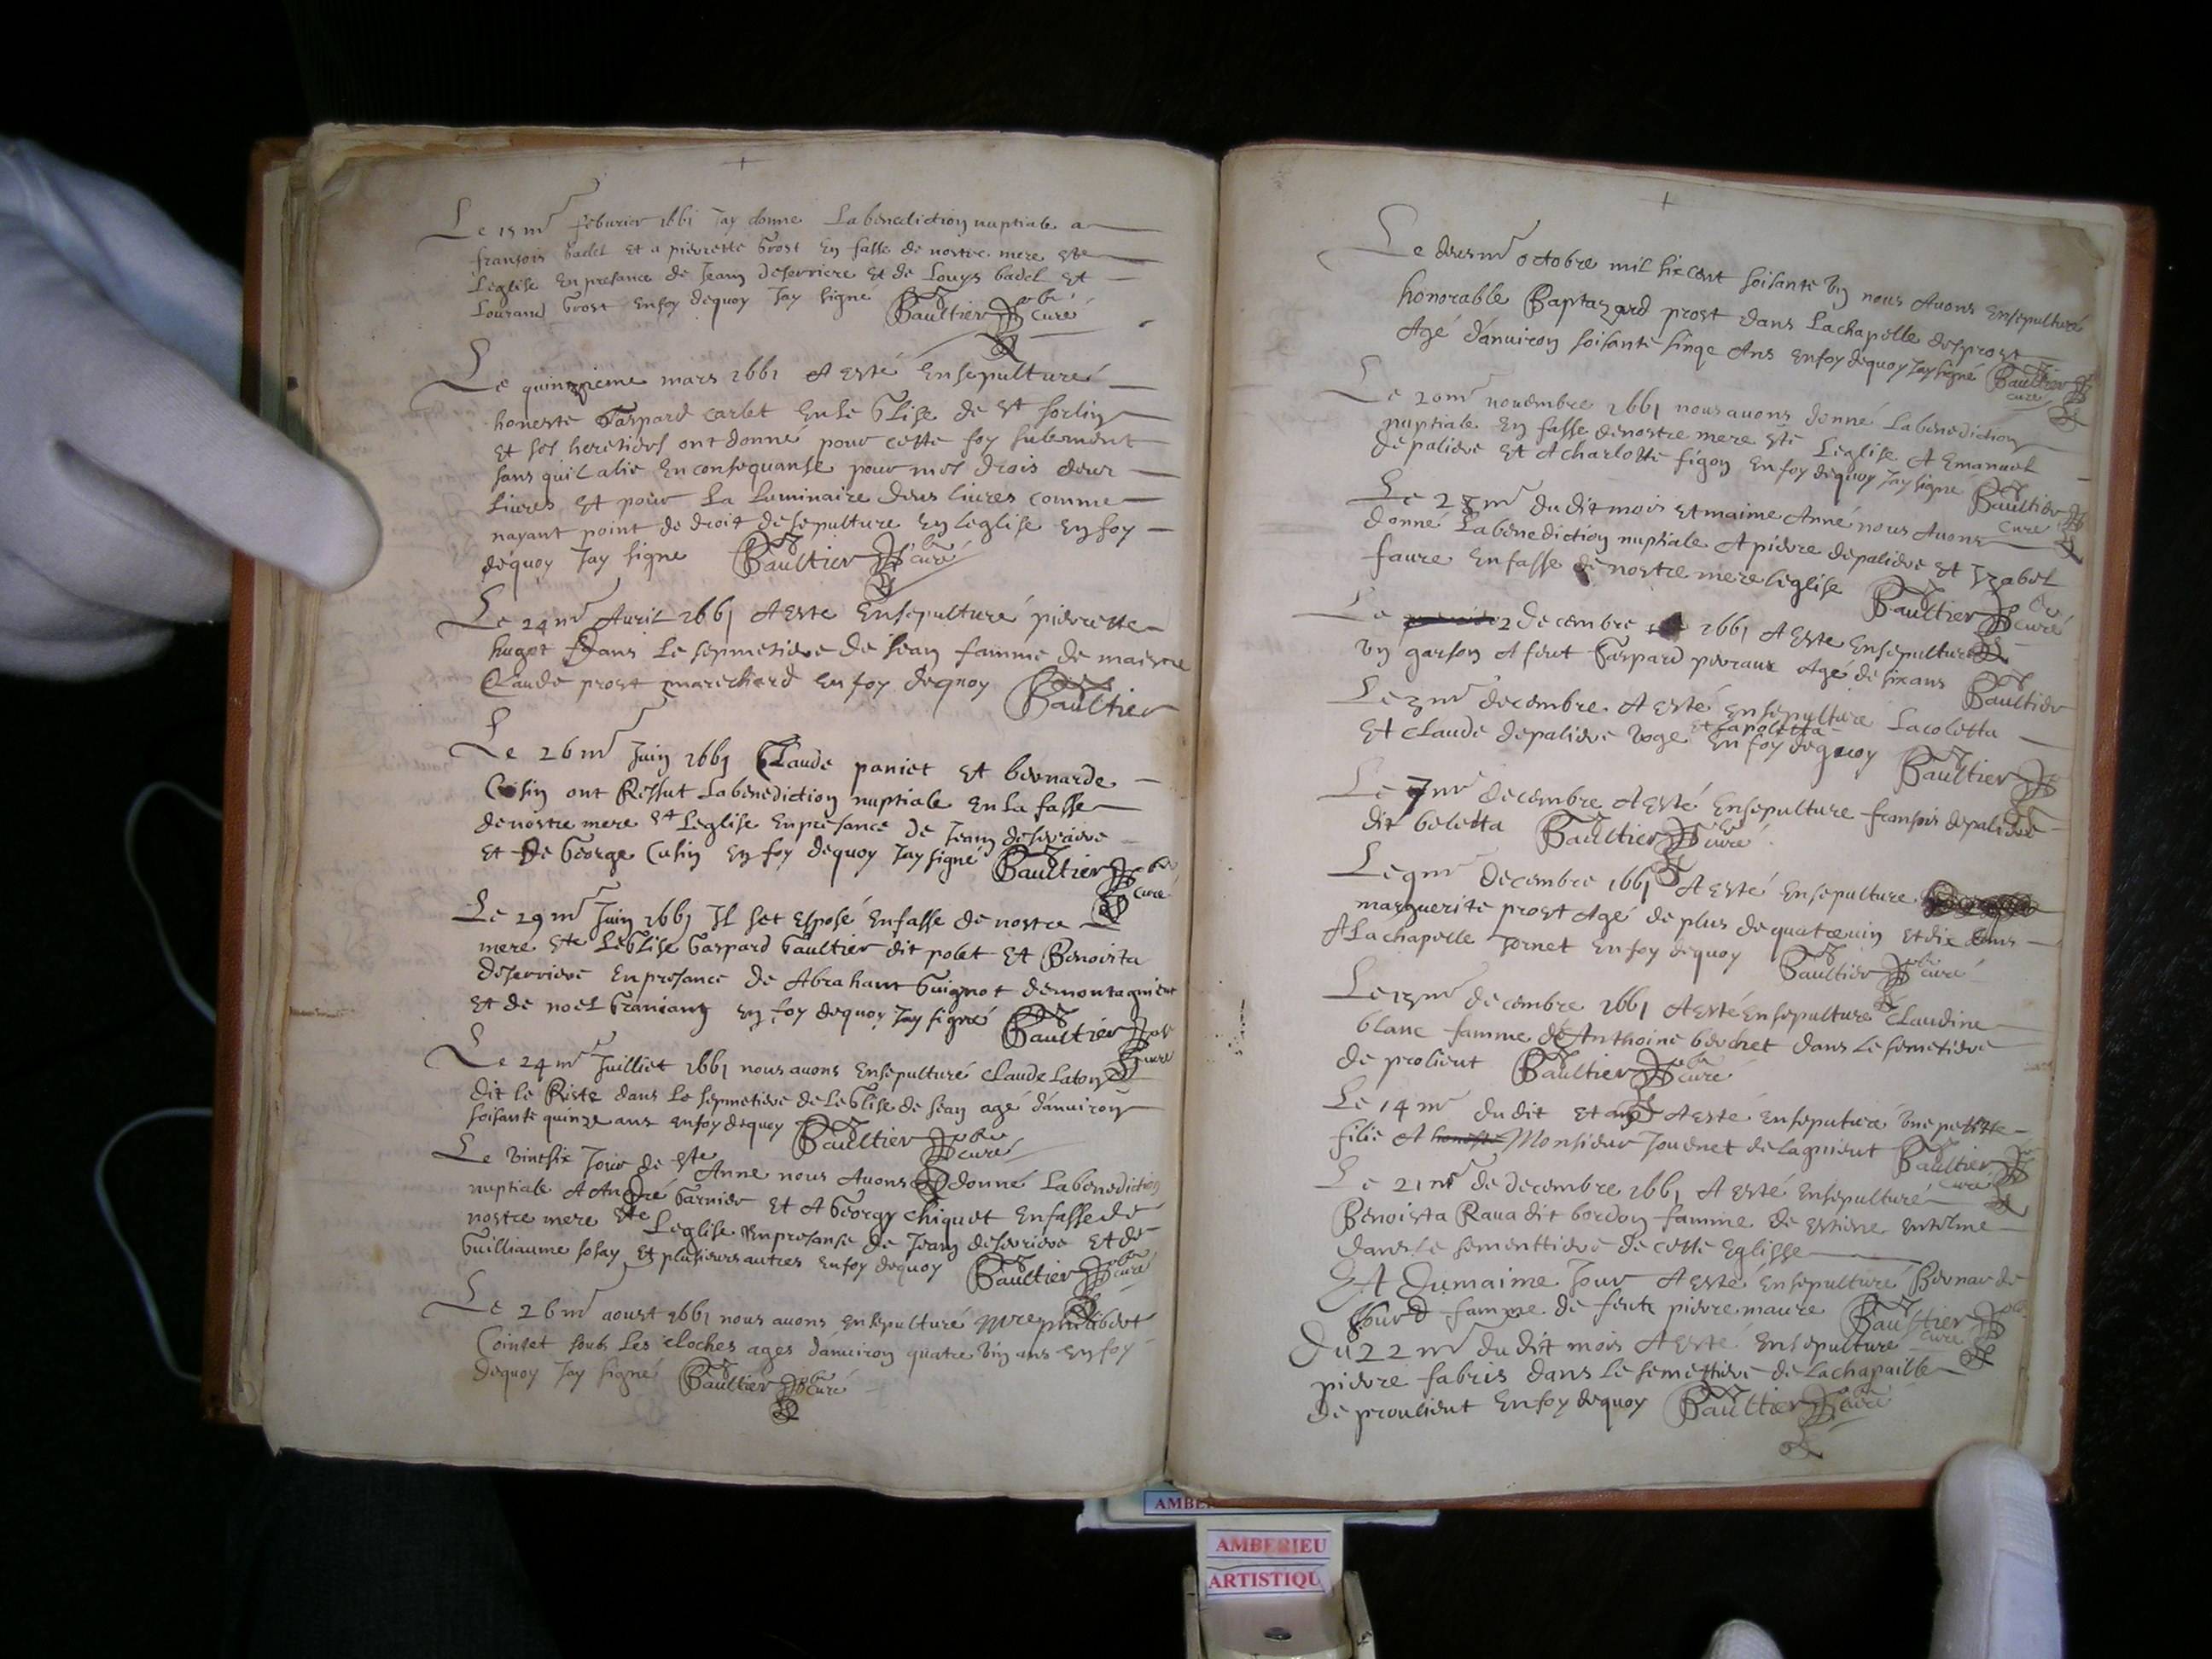 +
Le 15 me feburier 1661 Jay donne La benediction nuptiale a
fransois badel et a pierrette Grost En fasse de nostre mere ste
Leglise En presance de Jean deserriere et de Louys badel et
Lourand Grost En foy dequoy Jay signe Gaultier curé
Le quinzieme mars 1661 A esté Ensepulturé
honeste Gaspard carlet En Le Glise de st sorlin
et ses heretiers ont donné pour cette foy sulement
sans quil alie En consequanse pour mes drois deux
livres et pour La Luminaire deus livres comme
nayant point de droit de sepulture En leglise En foy
dequoy Jay signe Gaultier curé
Le 24 me Auril 1661 A este Ensepulturé pierrette
hugot Dans Le sepmetiere de sean famme de maistre
Claude prost marechard En foy dequoy Gaultier
Le 26 me Juin 1661 Claude paniet et bernarde
Cusin ont Ressut La benediction nuptiale En La fasse
de nostre mere ste Leglise En presance de Jean deserriere
et de George Cusin En foy dequoy Jay signe Gaultier curé
Le 29 me Juin 1661 Il set Esposé En fasse de nostre
mere ste LeGlise Gaspard Gaultier dit polet et Benoista
deserriere En presance de Abraham Guignot de montagnieu
et de noel En foy dequoy Jay signé Gaultier curé
Le 24 me Juilliet 1661 nous auons Ensepulturé Claude Laton
dit le Riste dans Le sepmetiere de LeGlise de sean agé danuiron
soisante quinze ans En foy dequoy Gaultier curé
Le vintsix Jour de ste Anne nous Auons donné La benediction
nuptiale A André Garnier et A Georgy chiquet En fasse de
nostre mere ste Leglise En presanse de Jean deserriere et de
Guilliaume sosay et plusieurs autres En foy dequoy Gaultier curé
Le 26 me aoust 1661 nous auons Ensepulturé mre philibert
Cointet soub Les cloches ages danuiron quatre vin ans En foy
dequoy Jay signé Gaultier curé
+
Le deusme octobre mil six cent soisante vn nous Auons Ensepulturé
honorable Baptazard prost dans La chapelle des prost
Agé danuiron soisante sinqe Ans En foy dequoy Jay signé Gaultier curé
Le 20 me nouembre 1661 nous auons donné La benediction
nuptiale En fasse de nostre mere ste Leglise A Emanuel
depaliere et A charlotte figon En foy dequoy Jay signe Gaultier curé
Le du dit mois et maime Anné nous Auons
donné La benediction nuptiale A pierre depaliere et Izabel
faure En fasse de nostre mere leglise Gaultier curé
Le 2 decembre 1661 A este Ensepulturé
vn garson A feut Gaspard perraux Agé de six ans Gaultier
Le 3 me decembre A esté Ensepulture Lacoletta
et Lapoletta
et Claude depaliere voge En foy dequoy Gaultier
Le 7 me decembre A esté Ensepulture fransois depaliere
dit beletta Gaultier curé
Le 9 me decembre 1661 A esté Ensepulture
marguerite prost Agé de plus de quatrevin et dix Ans
A La chapelle Jornet En foy dequoy Gaultier curé
Le 13 me decembre 1661 A esté Ensepulture Claudine
blanc famme de Anthoine berchet dans Le semetiere
de prolieut Gaultier curé
Le 14 me du dit et an A esté Ensepulturé vne petitte
filie A Monsieur Jouenet de lagnieut Gaultier curé
Le 21 me de decembre 1661 A esté Ensepulturé
Benoista Raua dit bordon famme de estiene
dans Le sementtiere de cette Eglisse
Et Du maime Jour A esté Ensepulturé Bernarde
famme de feut pierre maure Gaultier curé
Du 22 me du dit mois A esté Ensepulture
pierre fabris dans Le semettiere de La chapaille
de proulieut En foy dequoy Gaultier curé
AMBERIEU
ARTISTIQU